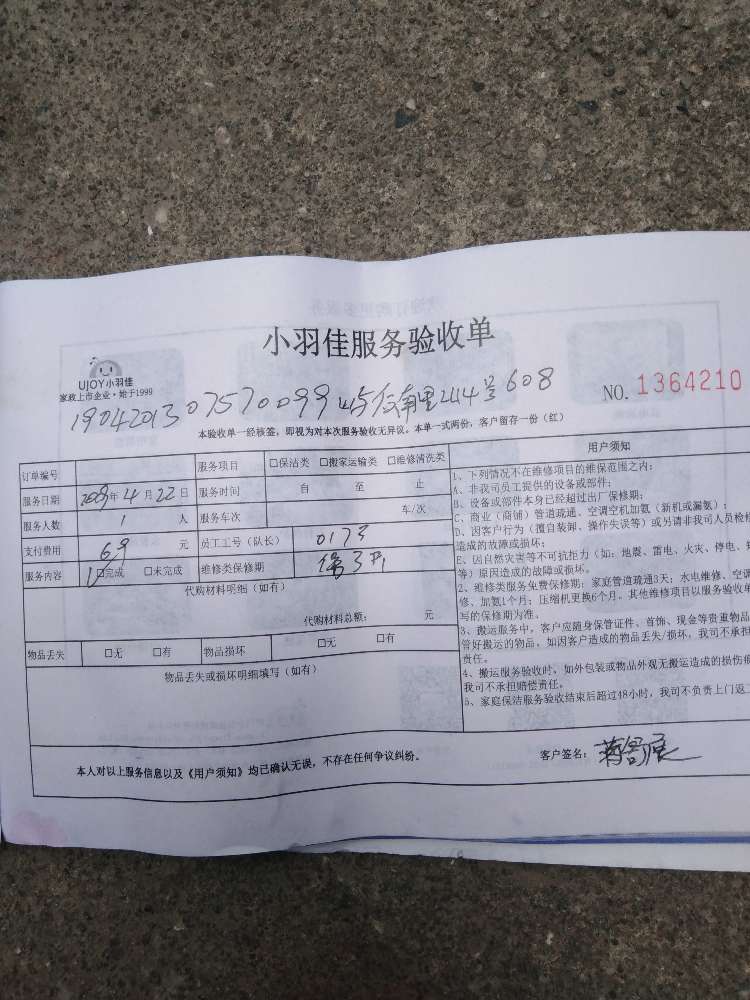 小羽佳服务验收单
UJOY小羽佳
家政上市企业·始于1999
NO. 1364210
1904201307570099 南里244号608
本验收单一经核签，即视为对本次服务验收无异议。本单一式两份，客户留存一份（红）
订单编号 服务项目 □保洁类 □搬家运输类 □维修清洗类
服务日期 年 4 月 22 日 服务时间 自 至 止
服务人数 1 人 服务车次 车/次
支付费用 69 元 员工工号（队长） 0173
服务内容 □完成 □未完成 维修类保修期
代购材料明细（如有）
代购材料总额： 元
物品丢失 □无 □有 物品损坏 □无 □有
物品丢失或损坏明细填写（如有）
用户须知
1、下列情况不在维修项目的维保范围之内：
A、非我司员工提供的设备或部件；
B、设备或部件本身已经超过出厂保修期；
C、商业（商铺）管道疏通、空调空机加氨（新机或漏氨）；
D、因客户行为（擅自装卸、操作失误等）或另请非我司人员检修
造成的故障或损坏；
E、因自然灾害等不可抗拒力（如：地震、雷电、火灾、停电、
等）原因造成的故障或损坏。
2、维修类服务免费保修期：家庭管道疏通3天；水电维修、空调
修、加氨1个月；压缩机更换6个月。其他维修项目以服务验收单
写的保修期为准。
3、搬运服务中，客户应随身保管证件、首饰、现金等贵重物品
管好搬运的物品，如因客户造成的物品丢失/损坏，我司不承担
责任。
4、搬运服务验收时，如外包装或物品外观无搬运造成的损伤痕
我司不承担赔偿责任。
5、家庭保洁服务验收结束后超过48小时，我司不负责上门返工
本人对以上服务信息以及《用户须知》均已确认无误，不存在任何争议纠纷。
客户签名：